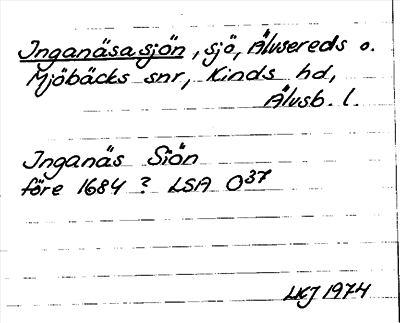 Inganäsasjön, sjö, Älvsereds o.
Mjöbäcks snr, Kinds hd,
Älvsb. l.
Inganäs Siön
före 1684 ? LSA O37
LKJ 1974